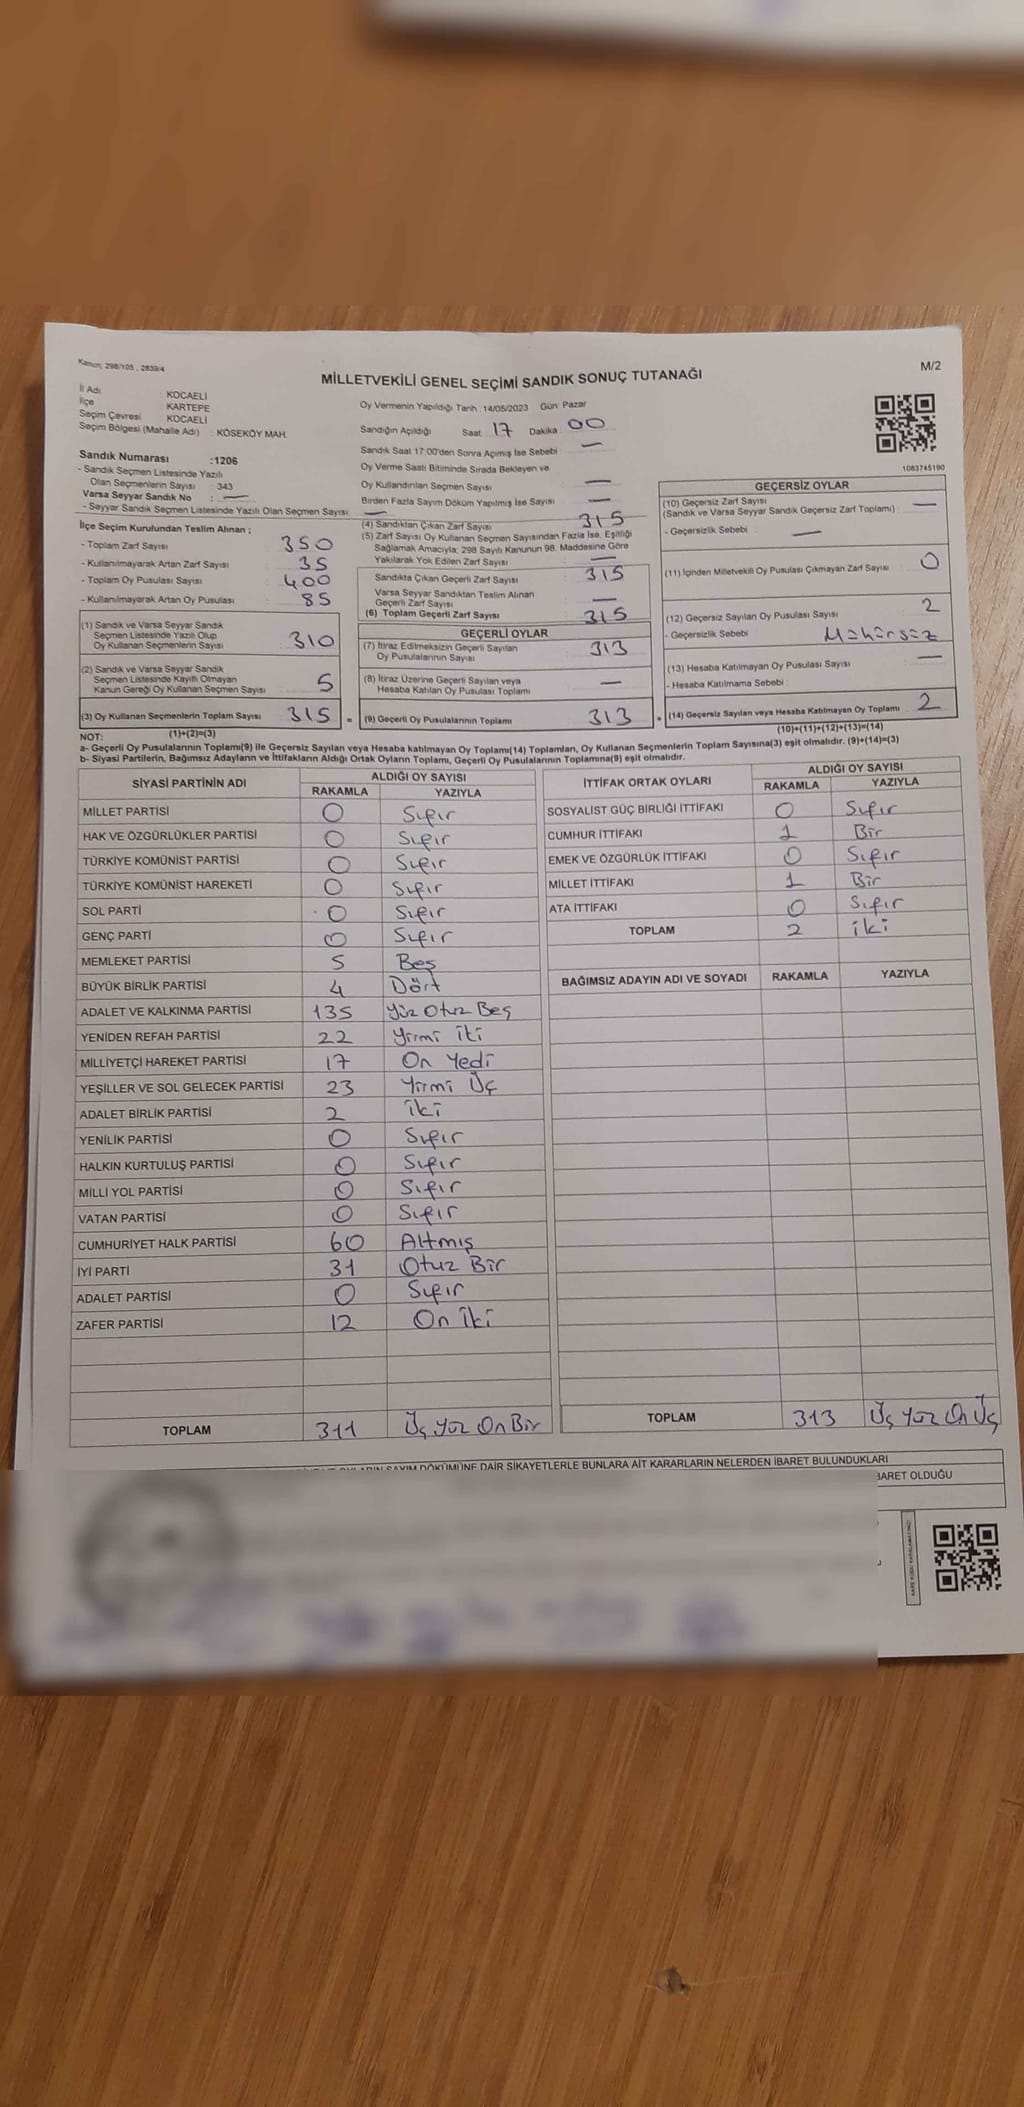 Kanun; 298/105 , 2839/4
M/2
MİLLETVEKİLİ GENEL SEÇİMİ SANDIK SONUÇ TUTANAĞI
İl Adı KOCAELİ
İlçe KARTEPE
Seçim Çevresi : KOCAELİ
Seçim Bölgesi (Mahalle Adı) : KÖSEKÖY MAH.
Sandık Numarası :1206
- Sandık Seçmen Listesinde Yazılı
Olan Seçmenlerin Sayısı : 343
Varsa Seyyar Sandık No : —
- Seyyar Sandık Seçmen Listesinde Yazılı Olan Seçmen Sayısı: —
Oy Vermenin Yapıldığı Tarih :14/05/2023 Gün: Pazar
Sandığın Açıldığı Saat : 17 Dakika : 00
Sandık Saat 17:00'den Sonra Açımış İse Sebebi : —
Oy Verme Saati Bitiminde Sırada Bekleyen ve
Oy Kullandırılan Seçmen Sayısı : —
Birden Fazla Sayım Döküm Yapılmış İse Sayısı : —
1083745190
İlçe Seçim Kurulundan Teslim Alınan ;
- Toplam Zarf Sayısı : 350
- Kullanılmayarak Artan Zarf Sayısı : 35
- Toplam Oy Pusulası Sayısı : 400
- Kullanılmayarak Artan Oy Pusulası : 85
(1) Sandık ve Varsa Seyyar Sandık
Seçmen Listesinde Yazılı Olup
Oy Kullanan Seçmenlerin Sayısı : 310
(2) Sandık ve Varsa Seyyar Sandık
Seçmen Listesinde Kayıtlı Olmayan
Kanun Gereği Oy Kullanan Seçmen Sayısı : 5
(3) Oy Kullanan Seçmenlerin Toplam Sayısı : 315 =
(4) Sandıktan Çıkan Zarf Sayısı : 315
(5) Zarf Sayısı Oy Kullanan Seçmen Sayısından Fazla İse, Eşitliği
Sağlamak Amacıyla; 298 Sayılı Kanunun 98. Maddesine Göre
Yakılarak Yok Edilen Zarf Sayısı : —
Sandıkta Çıkan Geçerli Zarf Sayısı : 315
Varsa Seyyar Sandıktan Teslim Alınan
Geçerli Zarf Sayısı : —
(6) Toplam Geçerli Zarf Sayısı : 315
GEÇERLİ OYLAR
(7) İtiraz Edilmeksizin Geçerli Sayılan
Oy Pusulalarının Sayısı : 313
(8) İtiraz Üzerine Geçerli Sayılan veya
Hesaba Katılan Oy Pusulası Toplamı : —
(9) Geçerli Oy Pusulalarının Toplamı : 313 +
GEÇERSİZ OYLAR
(10) Geçersiz Zarf Sayısı
(Sandık ve Varsa Seyyar Sandık Geçersiz Zarf Toplamı) : —
- Geçersizlik Sebebi : —
(11) İçinden Milletvekili Oy Pusulası Çıkmayan Zarf Sayısı : 0
(12) Geçersiz Sayılan Oy Pusulası Sayısı : 2
- Geçersizlik Sebebi : Mühürsüz
(13) Hesaba Katılmayan Oy Pusulası Sayısı : —
- Hesaba Katılmama Sebebi :
(14) Geçersiz Sayılan veya Hesaba Katılmayan Oy Toplamı : 2
NOT: (1)+(2)=(3)
(10)+(11)+(12)+(13)=(14)
a- Geçerli Oy Pusulalarının Toplamı(9) ile Geçersiz Sayılan veya Hesaba katılmayan Oy Toplamı(14) Toplamları, Oy Kullanan Seçmenlerin Toplam Sayısına(3) eşit olmalıdır. (9)+(14)=(3)
b- Siyasi Partilerin, Bağımsız Adayların ve İttifakların Aldığı Ortak Oyların Toplamı, Geçerli Oy Pusulalarının Toplamına(9) eşit olmalıdır.
SİYASİ PARTİNİN ADI ALDIĞI OY SAYISI
RAKAMLA YAZIYLA
MİLLET PARTİSİ 0 Sıfır
HAK VE ÖZGÜRLÜKLER PARTİSİ 0 Sıfır
TÜRKİYE KOMÜNİST PARTİSİ 0 Sıfır
TÜRKİYE KOMÜNİST HAREKETİ 0 Sıfır
SOL PARTİ 0 Sıfır
GENÇ PARTİ 0 Sıfır
MEMLEKET PARTİSİ 5 Beş
BÜYÜK BİRLİK PARTİSİ 4 Dört
ADALET VE KALKINMA PARTİSİ 135 Yüz Otuz Beş
YENİDEN REFAH PARTİSİ 22 Yirmi iki
MİLLİYETÇİ HAREKET PARTİSİ 17 On Yedi
YEŞİLLER VE SOL GELECEK PARTİSİ 23 Yirmi Üç
ADALET BİRLİK PARTİSİ 2 İki
YENİLİK PARTİSİ 0 Sıfır
HALKIN KURTULUŞ PARTİSİ 0 Sıfır
MİLLİ YOL PARTİSİ 0 Sıfır
VATAN PARTİSİ 0 Sıfır
CUMHURİYET HALK PARTİSİ 60 Altmış
İYİ PARTİ 31 Otuz Bir
ADALET PARTİSİ 0 Sıfır
ZAFER PARTİSİ 12 On İki
TOPLAM 311 Üç Yüz On Bir
İTTİFAK ORTAK OYLARI ALDIĞI OY SAYISI
RAKAMLA YAZIYLA
SOSYALİST GÜÇ BİRLİĞİ İTTİFAKI 0 Sıfır
CUMHUR İTTİFAKI 1 Bir
EMEK VE ÖZGÜRLÜK İTTİFAKI 0 Sıfır
MİLLET İTTİFAKI 1 Bir
ATA İTTİFAKI 0 Sıfır
TOPLAM 2 iki
BAĞIMSIZ ADAYIN ADI VE SOYADI RAKAMLA YAZIYLA
TOPLAM 313 Üç Yüz On Üç
SAYIM DÖKÜMÜNE DAİR ŞİKAYETLERLE BUNLARA AİT KARARLARIN NELERDEN İBARET BULUNDUKLARI
İBARET OLDUĞU